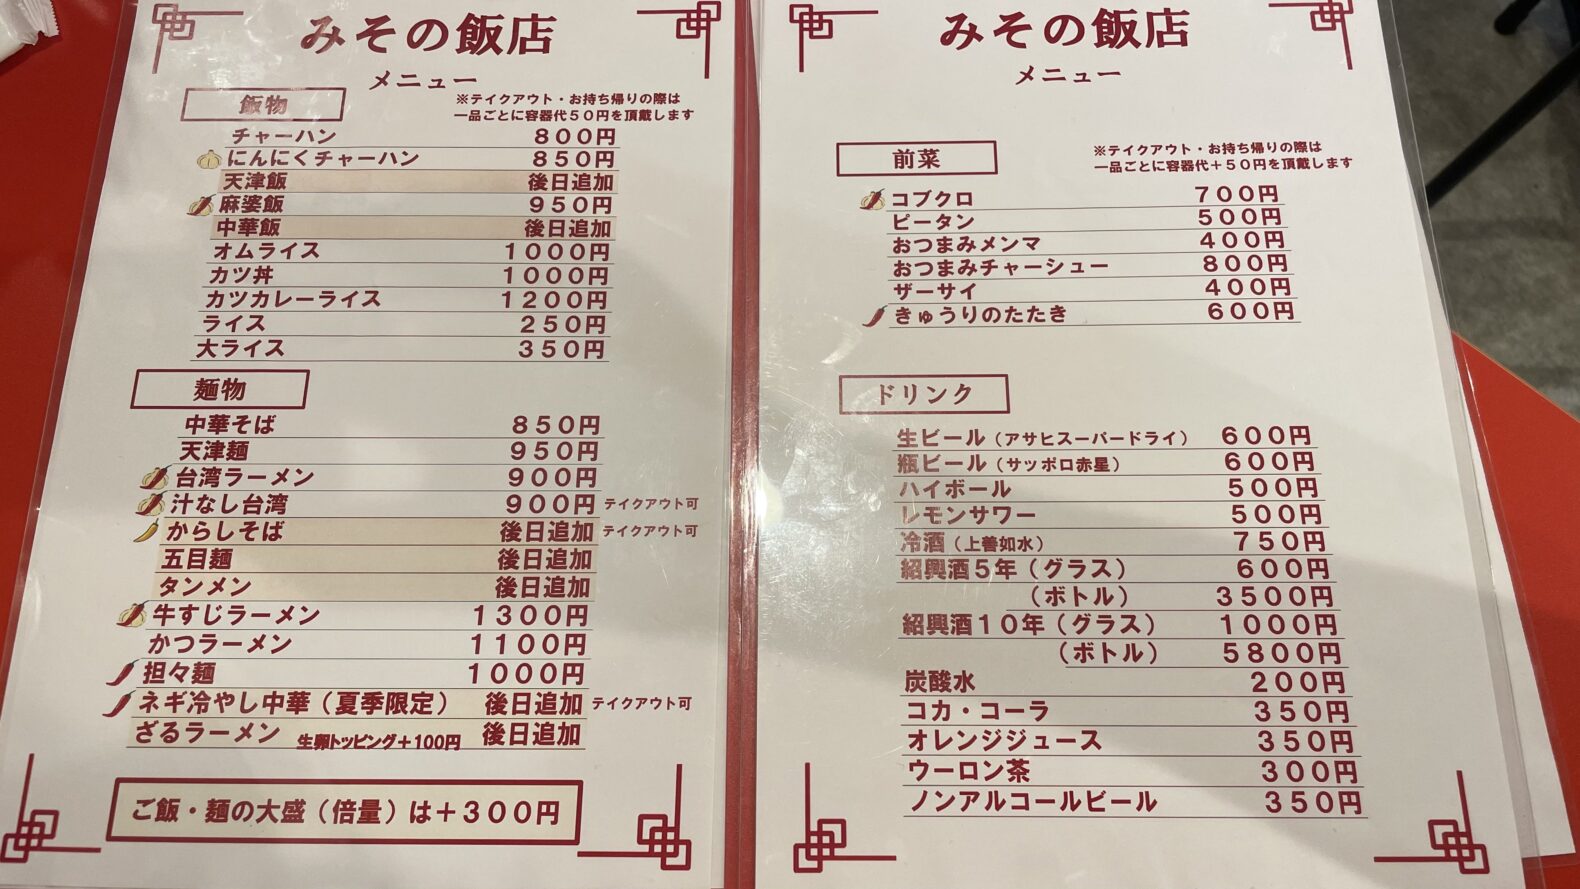 みその飯店
メニュー
飯物
※テイクアウト・お持ち帰りの際は
一品ごとに容器代５０円を頂戴します
チャーハン ８００円
にんにくチャーハン ８５０円
天津飯 後日追加
麻婆飯 ９５０円
中華飯 後日追加
オムライス １０００円
カツ丼 １０００円
カツカレーライス １２００円
ライス ２５０円
大ライス ３５０円
麺物
中華そば ８５０円
天津麺 ９５０円
台湾ラーメン ９００円
汁なし台湾 ９００円 テイクアウト可
からしそば 後日追加 テイクアウト可
五目麺 後日追加
タンメン 後日追加
牛すじラーメン １３００円
かつラーメン １１００円
担々麺 １０００円
ネギ冷やし中華（夏季限定） 後日追加 テイクアウト可
ざるラーメン 生卵トッピング＋100円 後日追加
ご飯・麺の大盛（倍量）は＋３００円
みその飯店
メニュー
前菜
※テイクアウト・お持ち帰りの際は
一品ごとに容器代＋５０円を頂戴します
コブクロ ７００円
ピータン ５００円
おつまみメンマ ４００円
おつまみチャーシュー ８００円
ザーサイ ４００円
きゅうりのたたき ６００円
ドリンク
生ビール（アサヒスーパードライ） ６００円
瓶ビール（サッポロ赤星） ６００円
ハイボール ５００円
レモンサワー ５００円
冷酒（上善如水） ７５０円
紹興酒５年（グラス） ６００円
（ボトル） ３５００円
紹興酒１０年（グラス） １０００円
（ボトル） ５８００円
炭酸水 ２００円
コカ・コーラ ３５０円
オレンジジュース ３５０円
ウーロン茶 ３００円
ノンアルコールビール ３５０円